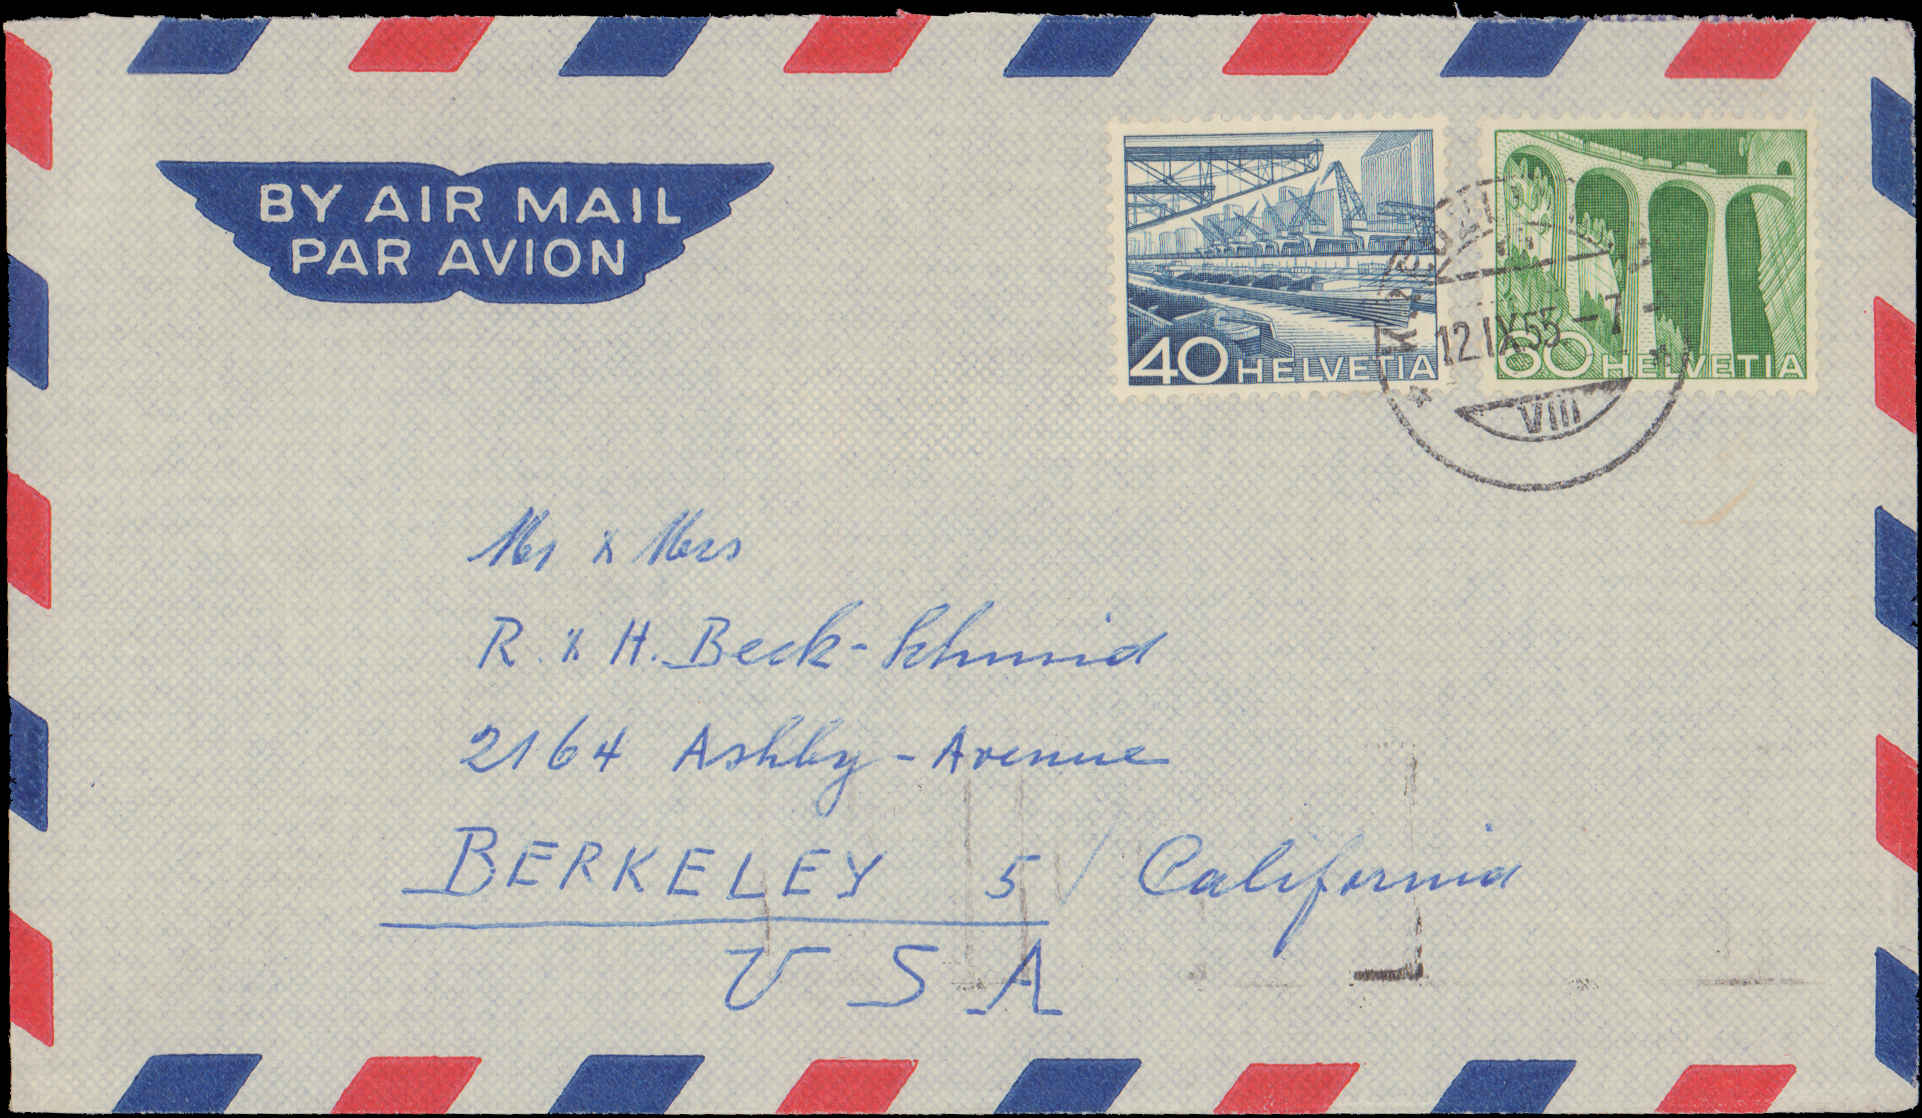 BY AIR MAIL
PAR AVION
40 HELVETIA
60 HELVETIA
12.IX.55 – 7 –
VIII
Mr & Mrs
R. & H. Beck-Schmid
2164 Ashby-Avenue
BERKELEY 5 / California
USA